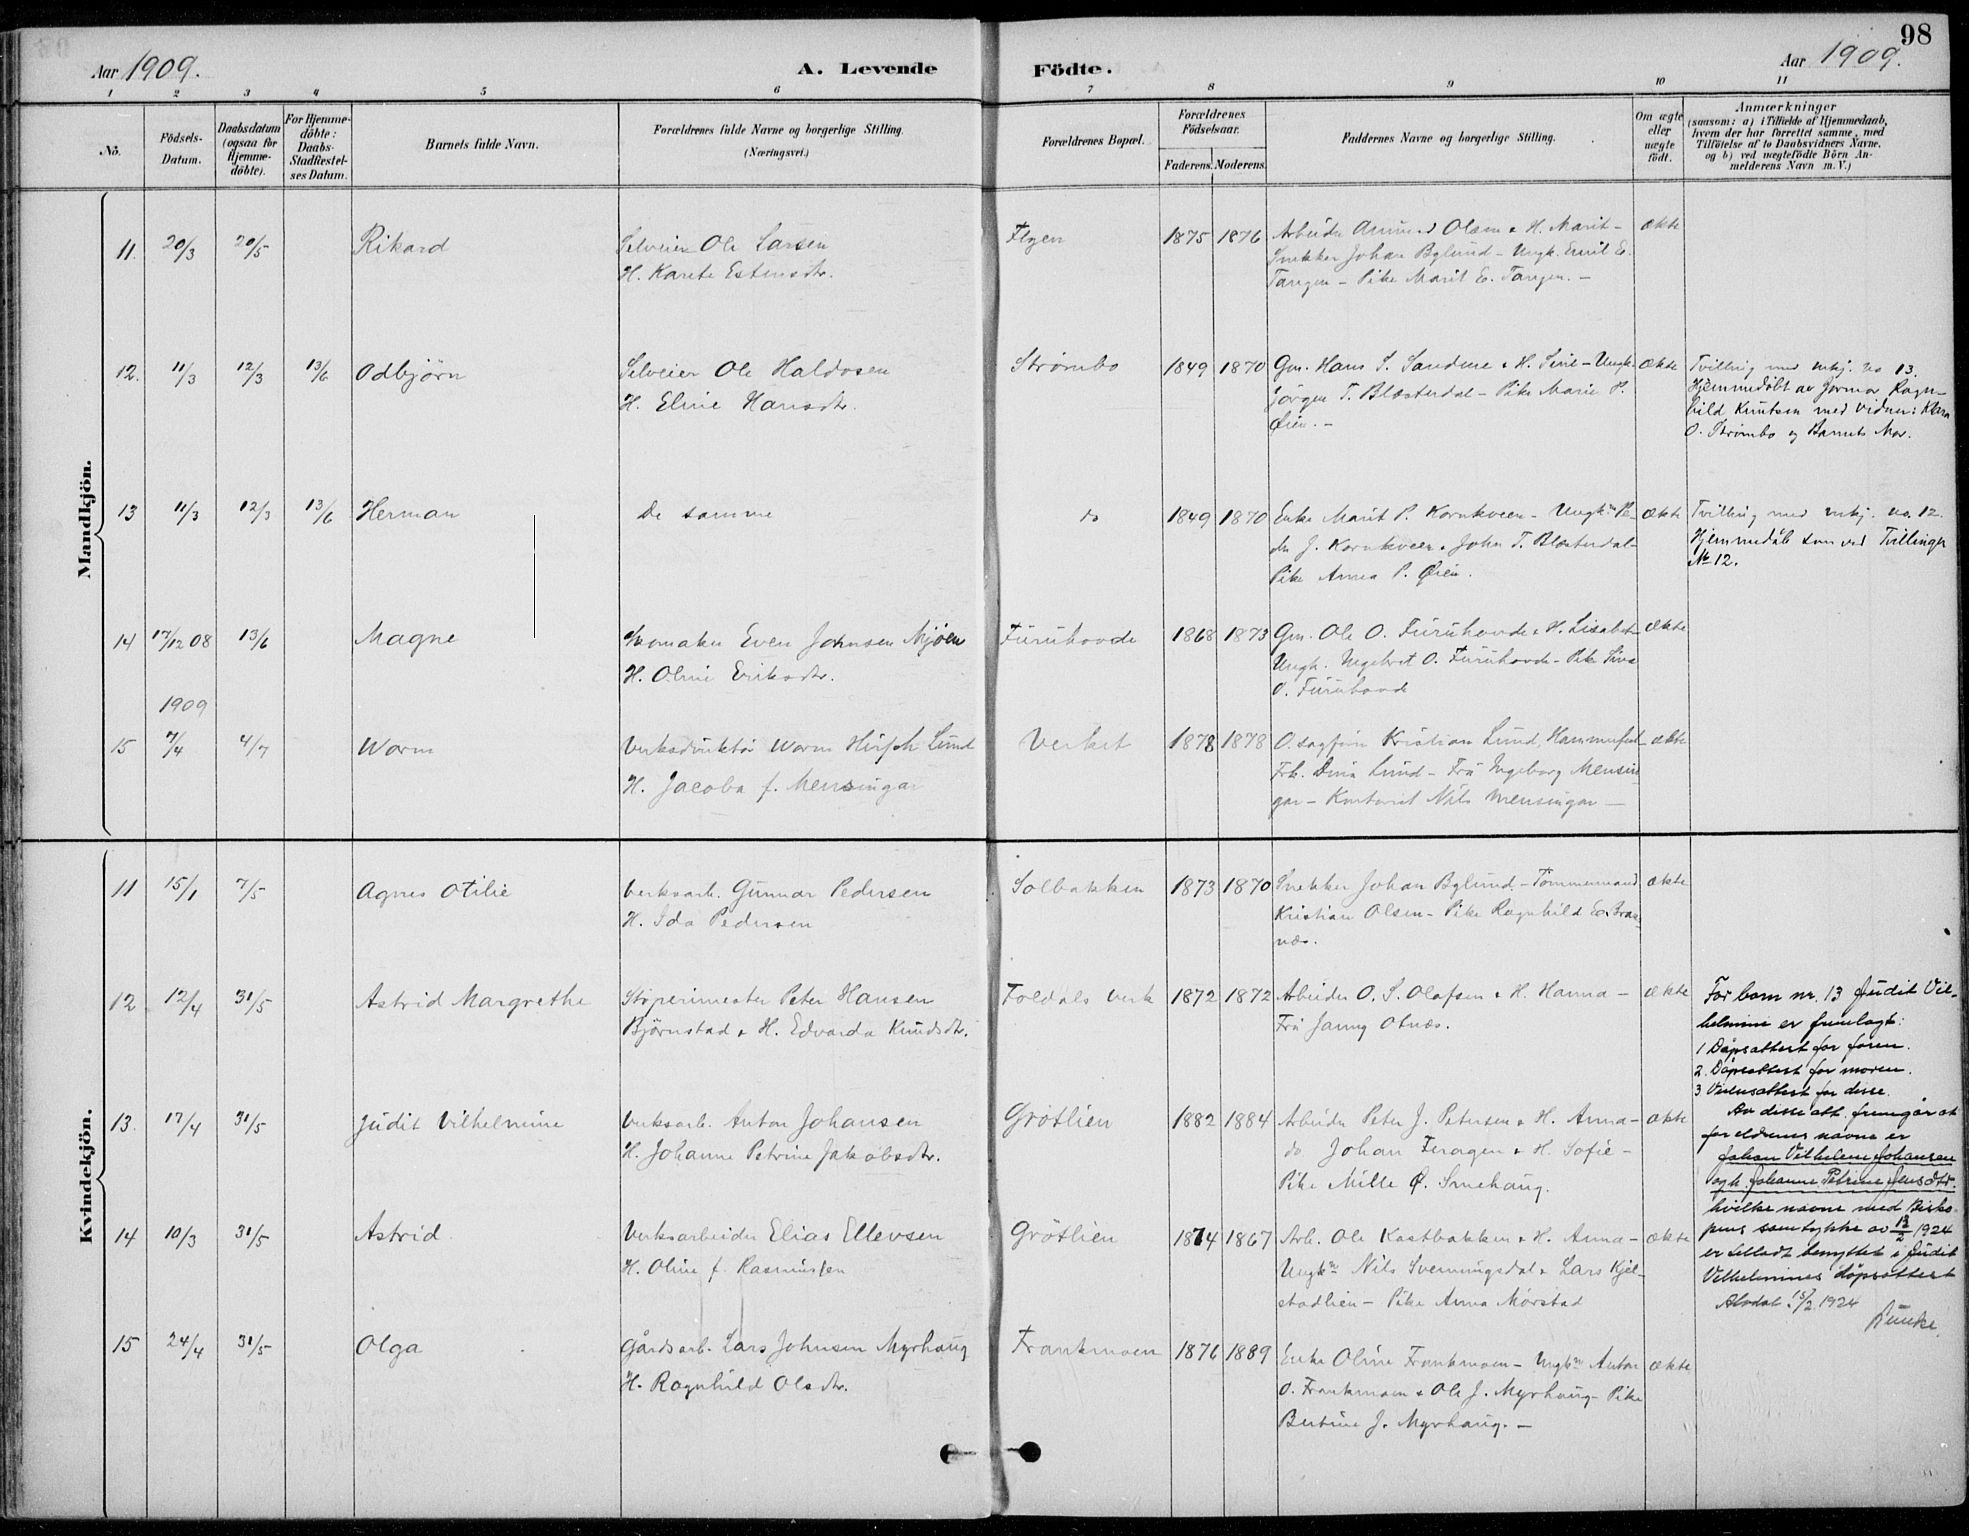 98
Aar 1909.
A. Levende
Födte.
Aar 1909.
1 2 3 4 5 6 7 8 9 10 11
No.
Födsels-
Datum.
Daabsdatum
(ogsaa for
Hjemme-
döbte).
For Hjemme-
döbte:
Daabs-
Stadfæstel-
ses Datum.
Barnets fulde Navn.
Forældrenes fulde Navne og borgerlige Stilling.
(Næringsvei.)
Forældrenes Bopæl.
Forældrenes
Födselsaar.
Faderens. Moderens.
Faddernes Navne og borgerlige Stilling.
Om ægte
eller
uægte
födt.
Anmærkninger
(saasom: a) i Tilfælde af Hjemmedaab,
hvem der har forrettet samme, med
Tilföielse af to Daabsvidners Navne,
og b) ved uægtefödte Börn An-
melderens Navn m. V.)
Mandkjön.
11. 20/3 20/5 Rikard
Selveier Ole Larsen
H. Karete Estensdtr.
Flyen 1875 1876
Arbeider Olsen & H. Marit -
Snekker Johan Bylund - Ungk. Emil E.
Tangen - Pike Marit E. Tangen. -
ækte
12. 11/3 12/3 13/6 Odbjörn
Selveier Ole Haldosen
H. Eline Hansdtr.
Strömbo 1849 1870
Gm. Hans S. Sandene & H. Sine - Ungk.
Jörgen T. Blæsterdal - Pike Marie P.
Øien. -
ækte
Tvilling med mkj. no 13.
Hjemmedöbt av Jormor Ragn-
hild Knutsen med vidner: Klara
O. Strömbo og Barnets Mor.
13 11/3 12/3 13/6 Herman
De samme
do 1849 1870
Enke Marit P. Kornkveen - Ungkm Pe-
der J. Kornkveen & John T. Blæsterdal -
Pike Anna P. Øien.
ækte
Tvilling med mkj. no. 12.
Hjemmedöb som ved Tvillingen
No 12.
14 17/12 08 13/6 Magne
Skomaker Even Johnsen Mjöen
H. Oline Eriksdtr.
Furuhovde 1868 1873
Gm. Ole O. Furuhovde & H. Lisabet -
Ungk. Ingebret O. Furuhovde - Pike Sina
O. Furuhovde
ækte
1909
15 7/4 4/7 Worm
Verksdirektör Worm Hirsch Lund
H. Jacoba f. Mensingar
Verket 1878 1878
O. sagförer Kristian Lund, Hammerfest -
Frk. Dina Lund - Fru Ingeborg Mensin-
gar - Kontorist Nils Mensingar -
ækte
Kvindekjön.
11 15/1 7/5 Agnes Otilie
Verksarb. Gunnar Pedersen
H. Ida Pedersen
Solbakken 1873 1870
Snekker Johan Bylund - Tömmermand
Kristian Olsen - Pike Ragnhild E. Bran-
næs.
ækte
12 12/4 31/5 Astrid Margrethe
Støperimester Peter Hansen
Björnstad & H. Edvarda Knudsdtr.
Foldals Verk 1872 1872
Arbeider O. S. Olafsen & H. Hanna -
Fru Janny Otnæs.
ækte
13. 17/4 31/5 Judit Vilhelmine
Verksarb. Anton Johansen
H. Johanne Petrine Jakobsdtr.
Grötlien 1882 1884
Arbeider Peter J. Petersen & H. Anna -
do Johan Feragen & H. Sofie -
Pike Mille Ø. Smehaug.
ækte
14 10/3 31/5 Astrid
Verksarbeider Elias Ellevsen
H. Oline f. Rasmussen
Grötlien 1874 1867
Arb. Ole Kastbakken & H. Anna -
Ungkm Nils Svenningsdal & Lars Kjel-
stadlien - Pike Anna Mörstad
ækte
15 24/4 31/5 Olga
Gårdsarb. Lars Johnsen Myrhaug
H. Ragnhild Olsdtr.
Frankmoen 1876 1889
Enke Oline Frankmoen - Ungkm Anton
O. Frankmoen & Ole J. Myrhaug - Pike
Bertine J. Myrhaug. -
ækte
For barn nr. 13 Judit Vil-
helmine er fremlagt:
1 Dåpsattest for faren.
2. Dåpsattest for moren.
3 Vielsesattest for disse.
Av disse att. fremgår at
foreldrenes navne er
Johan Vilhelm Johansen
og h. Johanne Petrine Jensdtr.
hvilke navne med Bisko-
pens samtykke av 13/2 1924
er tilladt benyttet i Judit
Vilhelmines dåpsattest
Alvdal 15/2 1924